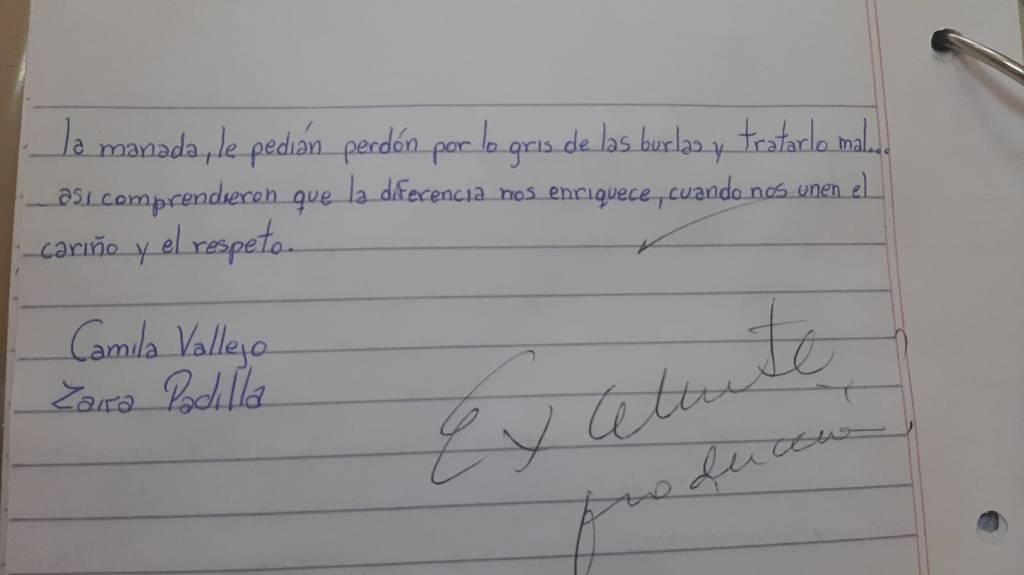 la manada, le pedián perdón por lo gris de las burlas y tratarlo mal...
asi comprendieron que la diferencia nos enriquece, cuando nos unen el
cariño y el respeto.
Camila Vallejo
Zaira Padilla
Excelente
producción